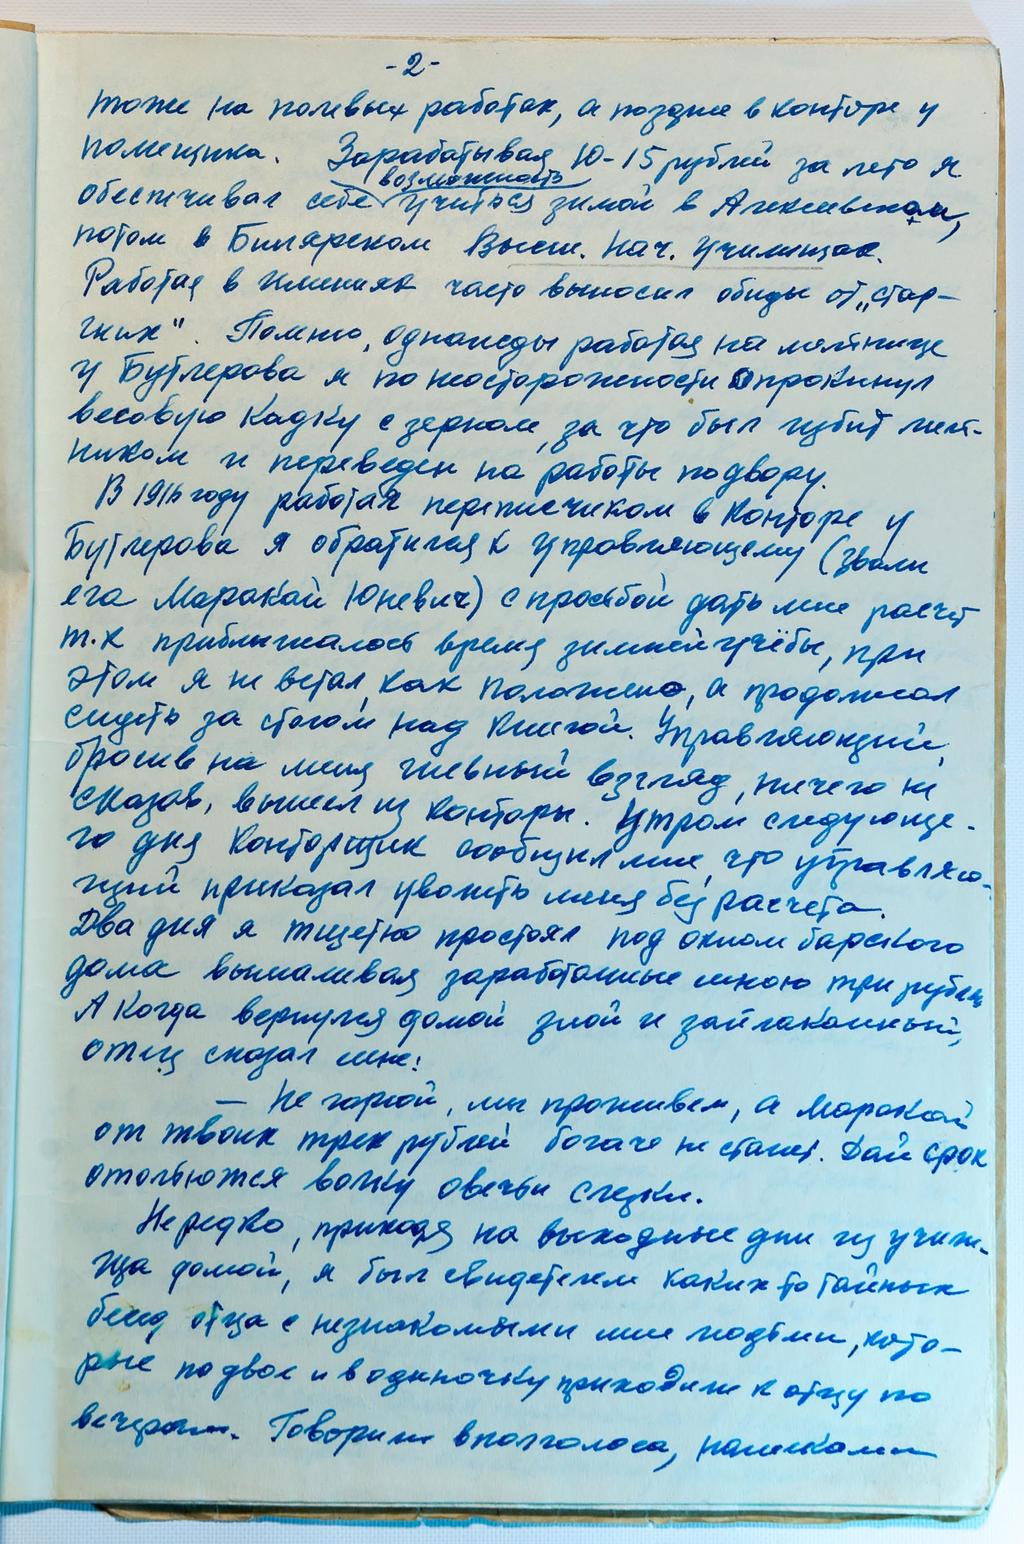 -2-
тоже на полевых работах, а позднее в конторе у
помещика. Зарабатывая 10-15 рублей за лето я
возможность
обеспечивал себе учиться зимой в Алексеевском,
потом в Билярском Высш. Нач. Училищах.
Работая в имениях часто выносил обиды от „стар-
ших". Помню, однажды работая на мельнице
у Бутлерова я по неосторожности опрокинул
весовую кадку с зерном, за что был избит мель-
ником и переведен на работы по двору.
В 1916 году работая переписчиком в конторе у
Бутлерова я обратился к управляющему (звали
его Маракай Юневич) с просьбой дать мне расчет
т.к приближалось время зимней учёбы, при
этом я не встал, как положено, а продолжал
сидеть за столом над книгой. Управляющий,
бросив на меня гневный взгляд, ничего не
сказав, вышел из конторы. Утром следующе-
го дня конторщик сообщил мне, что управляю-
щий приказал уволить меня без расчета.
Два дня я тщетно простоял под окном барского
дома вымаливая заработанные мною три рубля
А когда вернулся домой злой и заплаканный,
отец сказал мне:
— Не горюй, мы проживем, а Маракай
от твоих трех рублей богаче не станет. Дай срок
отольются волку овечьи слезки.
Нередко, приходя на выходные дни из учили-
ща домой, я был свидетелем каких то тайных
бесед отца с незнакомыми мне людьми, кото-
рые по двое и в одиночку приходили к отцу по
вечерам. Говорили вполголоса, намеками